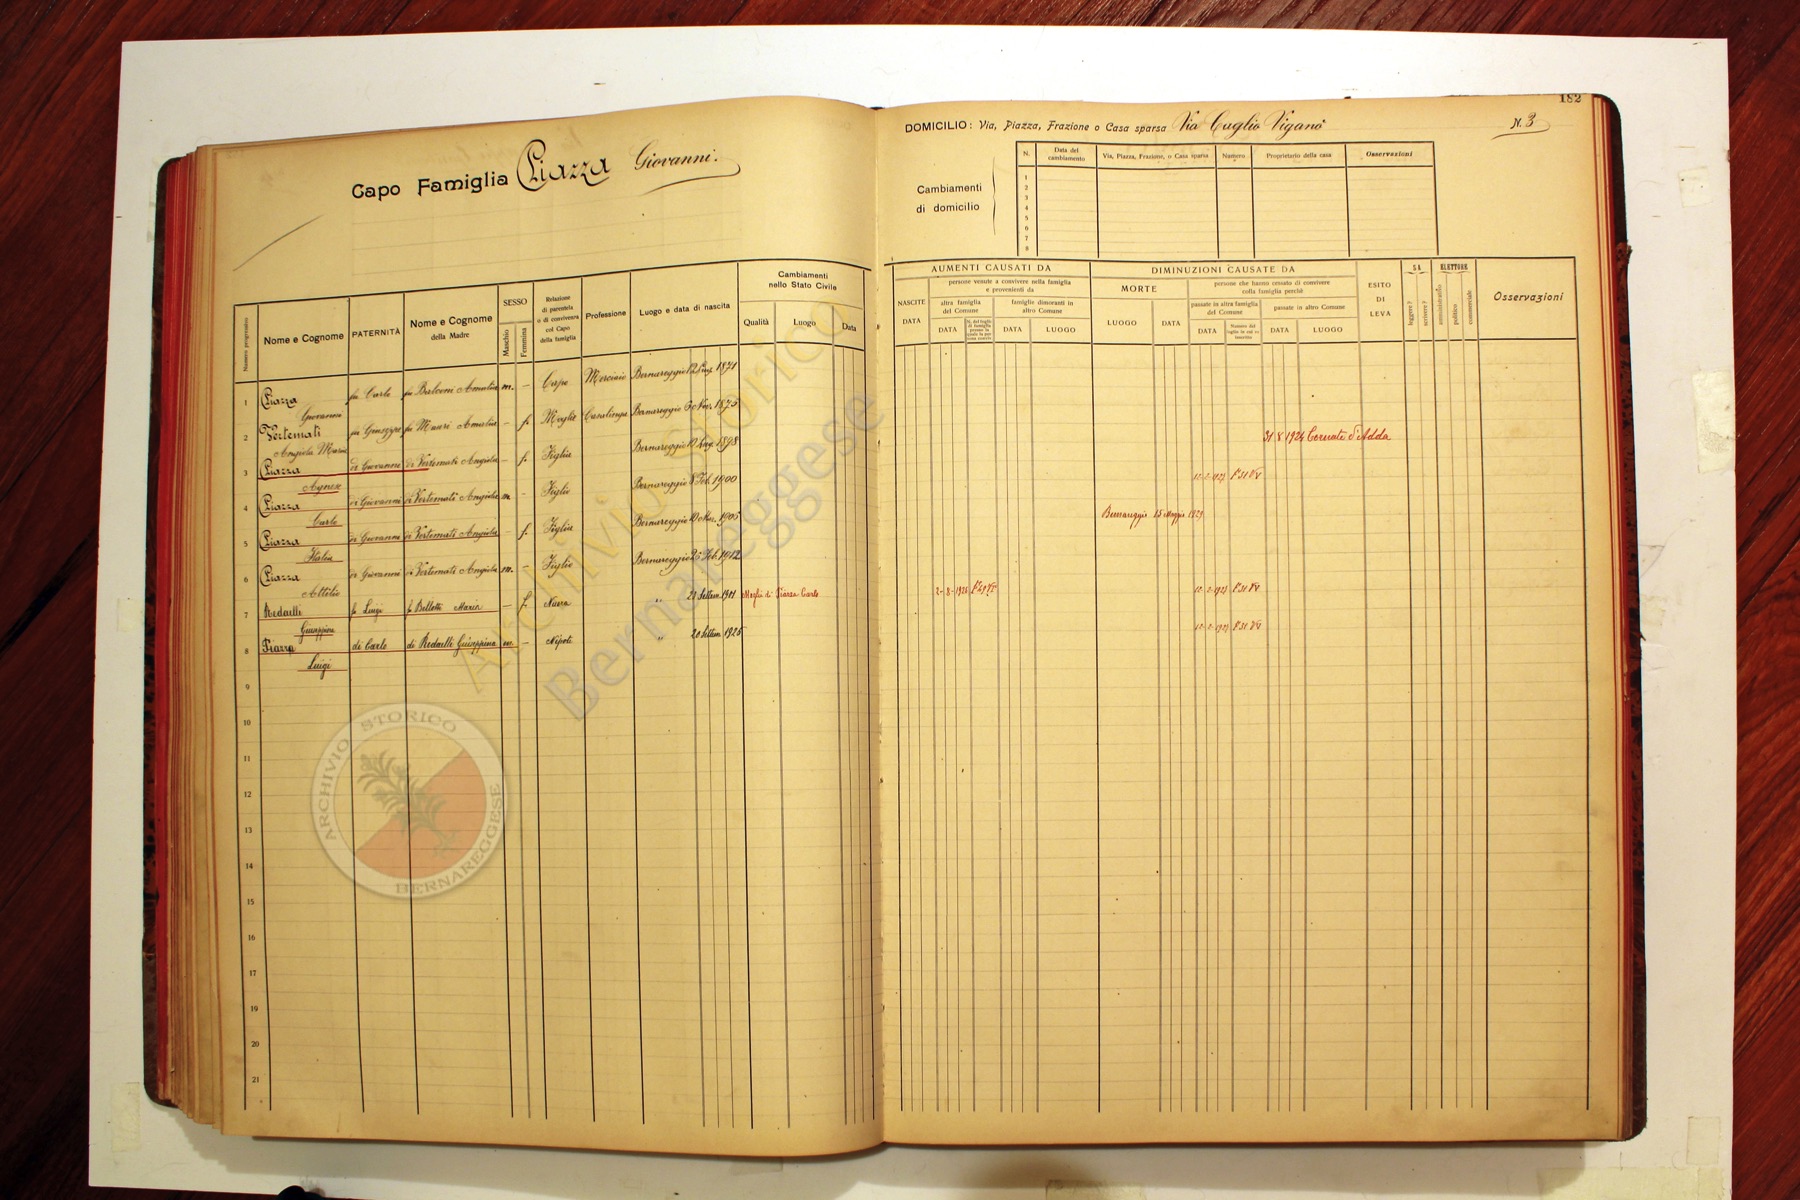 182
Capo Famiglia Piazza Giovanni.
DOMICILIO: Via, Piazza, Frazione o Casa sparsa Via Cuglio Viganò N. 3
Cambiamenti
di domicilio
N. Data del cambiamento Via, Piazza, Frazione, o Casa sparsa Numero Proprietario della casa Osservazioni
1
2
3
4
5
6
7
8
Numero progressivo
Nome e Cognome
PATERNITÀ
Nome e Cognome
della Madre
SESSO
Maschio
Femmina
Relazione
di parentela
o di convivenza
col Capo
della famiglia
Professione
Luogo e data di nascita
Cambiamenti
nello Stato Civile
Qualità
Luogo
Data
AUMENTI CAUSATI DA
NASCITE
DATA
persone venute a convivere nella famiglia
e provenienti da
altra famiglia
del Comune
DATA
famiglie dimoranti in
altro Comune
DATA
LUOGO
DIMINUZIONI CAUSATE DA
MORTE
LUOGO
DATA
persone che hanno cessato di convivere
colla famiglia perchè
passate in altra famiglia
del Comune
DATA
Numero del
foglio in cui è
inscritto
passate in altro Comune
DATA
LUOGO
ESITO
DI
LEVA
SA
leggere?
scrivere?
ELETTORE
amministrativo
politico
commerciale
Osservazioni
1 Piazza Giovanni fu Carlo fu Balconi Amalia m. – Capo Merciaio Bernareggio 1871
2 Vertemati Angiola Maria fu Giuseppe fu Mauri Amalia – f. Moglie Casalinga Bernareggio 6 Nov. 1875
3 Piazza Agnese di Giovanni di Vertemati Angiola – f. Figlia Bernareggio 1898 31 8 1924 Cornate d'Adda
4 Piazza Carlo di Giovanni di Vertemati Angiola m. – Figlio Bernareggio 8 Feb. 1900
5 Piazza Italia di Giovanni di Vertemati Angiola – f. Figlia Bernareggio 1905 Bernareggio 15 Maggio 1929
6 Piazza Attilio di Giovanni di Vertemati Angiola m. – Figlio Bernareggio 25 Feb. 1912
7 Redaelli Giuseppina fu Luigi fu Bellotti Maria – f. Nuora " 21 Settem. 1901 Moglie di Piazza Carlo
8 Piazza Luigi di Carlo di Redaelli Giuseppina m. – Nipote " 20 Settem. 1926
9
10
11
12
13
14
15
16
17
18
19
20
21
Archivio Storico
Bernareggese
ARCHIVIO STORICO
BERNAREGGESE